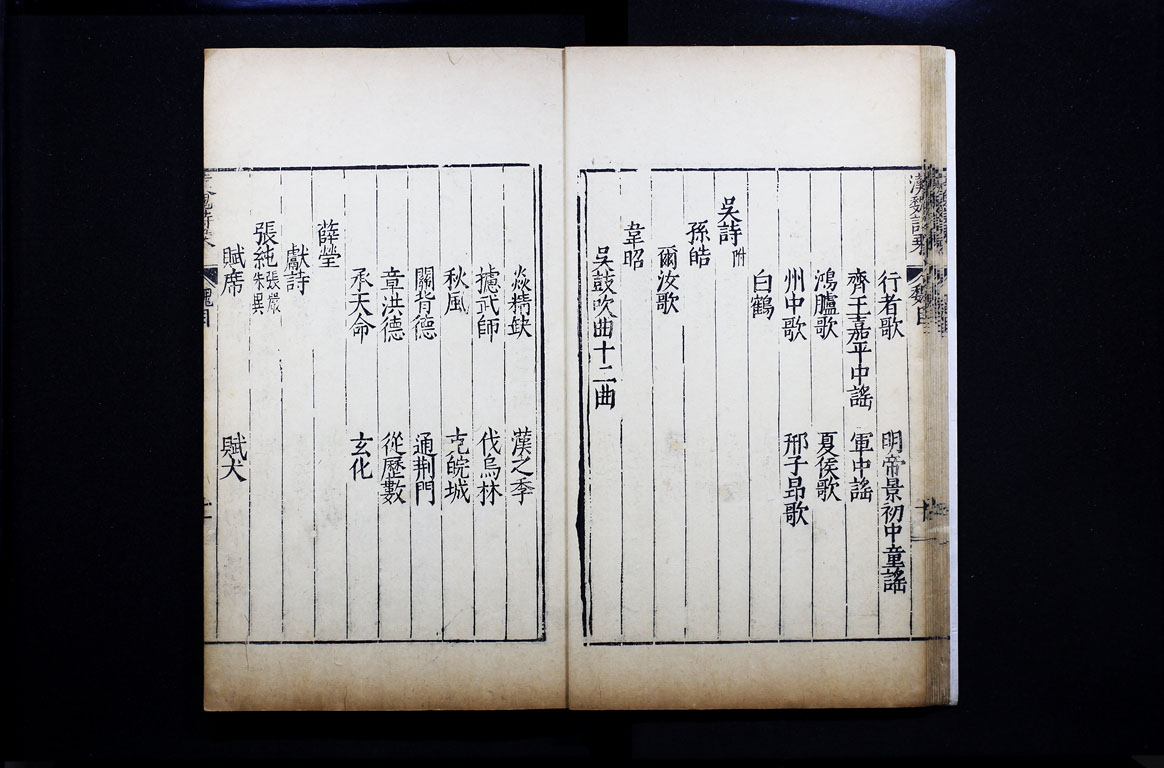 漢魏詩乘
魏目
行者歌 明帝景初中童謠
齊王嘉平中謠 軍中謠
鴻臚歌 夏侯歌
州中歌 邢子昂歌
白鶴
吳詩附
孫皓
爾汝歌
韋昭
吳鼓吹曲十二曲
炎精缺 漢之季
攄武師 伐烏林
秋風 克皖城
關背德 通荆門
章洪德 從歷數
承天命 玄化
薛瑩
獻詩
張純張嚴朱異
賦席 賦犬
魏目